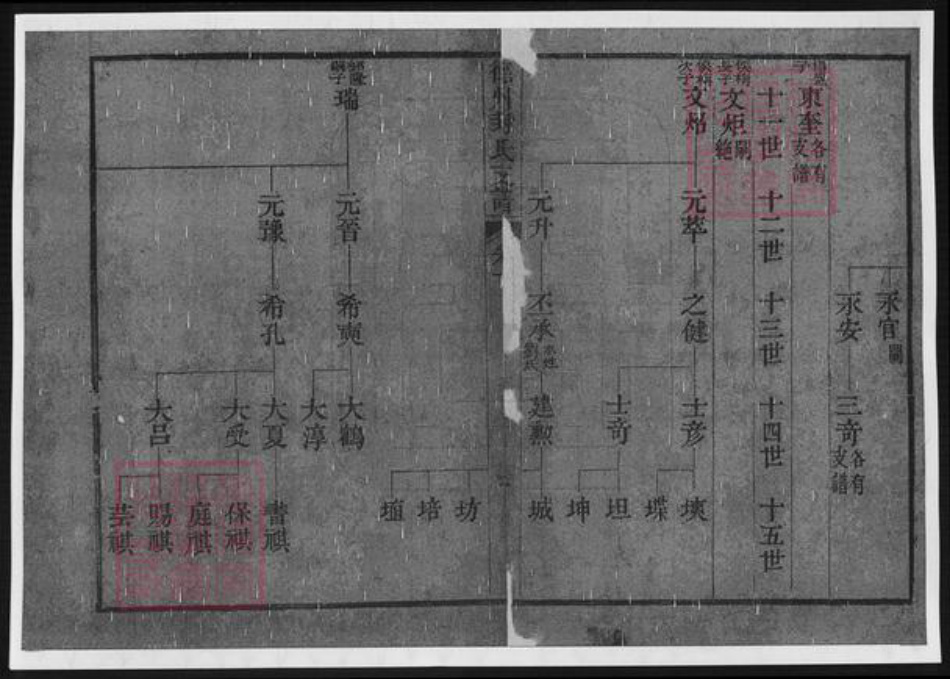 永官
永安
三奇
各有
支譜
東奎
各有
支譜
十一世
十二世
十三世
十四世
十五世
長子
文炬
嗣
絶
次子
元萃
之健
士彦
士奇
坦
坤
元升
丕承
建勲
城
坊
培
嗣子
瑞
元晉
希奭
大鶴
大淳
元豫
希孔
大夏
大受
大吕
保祺
庭祺
賜祺
芸祺